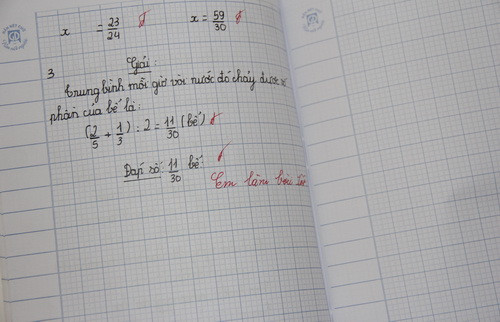 x = 23/24 đ x = 59/30 đ
3 Giải:
Trung bình mỗi giờ vòi nước đó chảy được số
phần của bể là:
(2/5 + 1/3) : 2 = 11/30 (bể) đ
Đáp số: 11/30 bể. đ
Em làm bài tốt